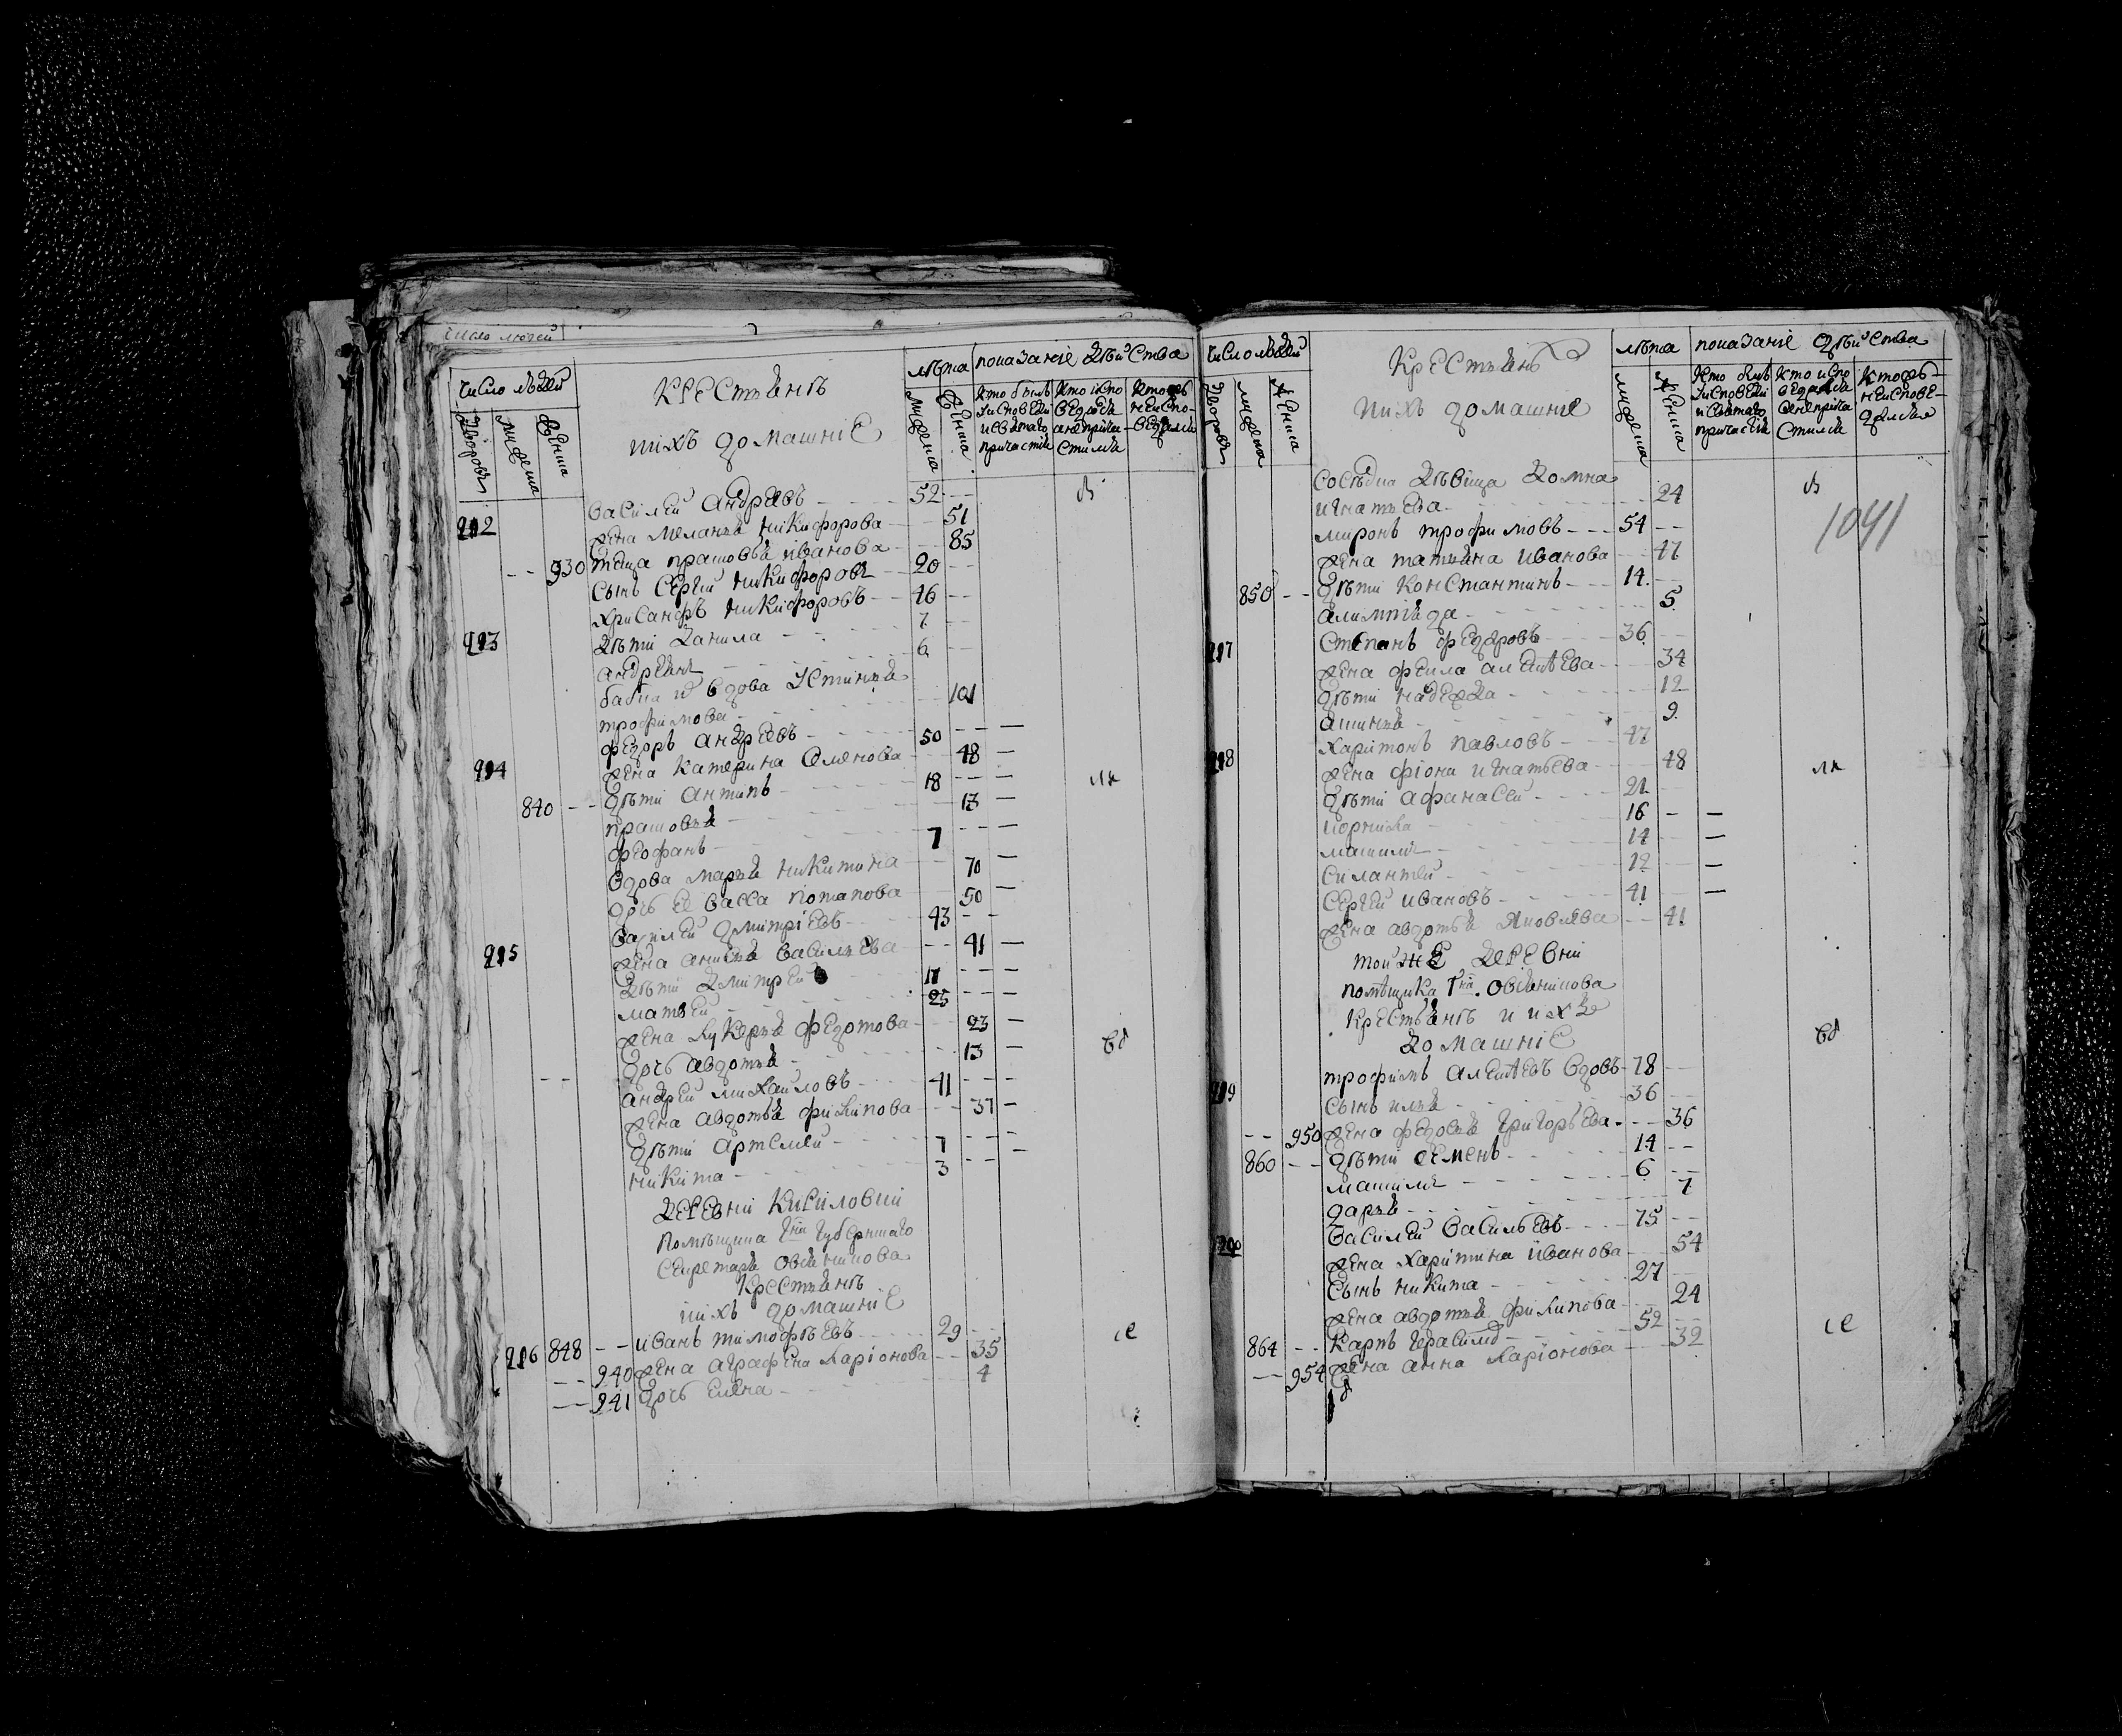 число людей
число людей
лѣта
показанїе дѣйства
Крестьянъ
ихъ домашнїе
дворовъ
мужеска
женска
мужеска
женска
кто былъ
у исповеди
и святаго
причастїя
кто испо
ведался
а не прича
стился
не испо-
ведался
Василей Андреевъ 52
жена Меланья Никифорова 51
930 теща Прасковья Иванова 85
сынъ Сергей Никифоровъ 20
Хрисанфъ Никифоровъ 46
дѣти Данила 7
Андреянъ 6
бабка и вдова Устинья
Трофимова 101
Федоръ Андреевъ 50
жена Катерина Семенова 48
840 дѣти Антипъ 18
Прасковья 13
Феофанъ 7
вдова Марья Никитина 70
дочь ее Васса Потапова 50
Василей Дмитрїевъ 43
жена Анисья Васильева 41
дѣти Дмитрей
Матвей 25
жена Лукерья Федотова 23
дочь Авдотья 13
Андрей Михайловъ 41
жена Авдотья Филипова 37
дѣти Артемей 7
Никита 3
деревни Кириловки
помѣщика Гна губернскаго
секретаря Овсяникова
Крестьянъ
ихъ домашнїе
848 Иванъ Тимофѣевъ 29
940 жена Аграфена Ларїонова 35
941 дочь Елена 4
число людей
Крестьянъ
ихъ домашнїе
лѣта
показанїе дѣйства
дворовъ
мужеска
женска
мужеска
женска
кто былъ
у исповеди
и святаго
причастїя
кто испо
ведался
а не прича
стился
не испове-
дался
1041
соседка дѣвица Домна
Игнатьева 24
Миронъ Трофимовъ 54
жена Татьяна Иванова 47
850 дѣти Константинъ 14
Алимпїяда 5
Степанъ Федоровъ 36
жена Фекла Алексѣева 34
дѣти Надежда 12
Акинья 9
Харитонъ Павловъ 47
жена Фїона Игнатьева 48
дѣти Афанасей 21
Корнила 16
Максимъ 14
Силантей 12
Сергей Ивановъ 41
жена Авдотья Яковлева 41
той же деревни
помѣщика Гна Овсяникова
Крестьянъ и ихъ
домашнїе
Трофимъ Алексѣевъ вдовъ 78
сынъ Илья 36
950 жена Федосья Григорьева 36
860 дѣти Семенъ 14
Максимъ 6
Дарья 7
Василей Васильевъ 75
жена Харитина Иванова 54
сынъ Никита 27
жена Авдотья Филипова 24
864 Карпъ Герасимо 52
954 жена Анна Ларїонова 32